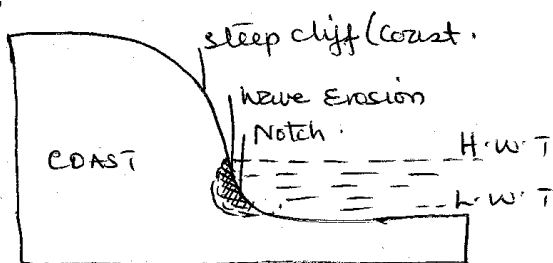 steep cliff (coast.
Wave Erosion
Notch.
H.W.T
COAST
L.W.T